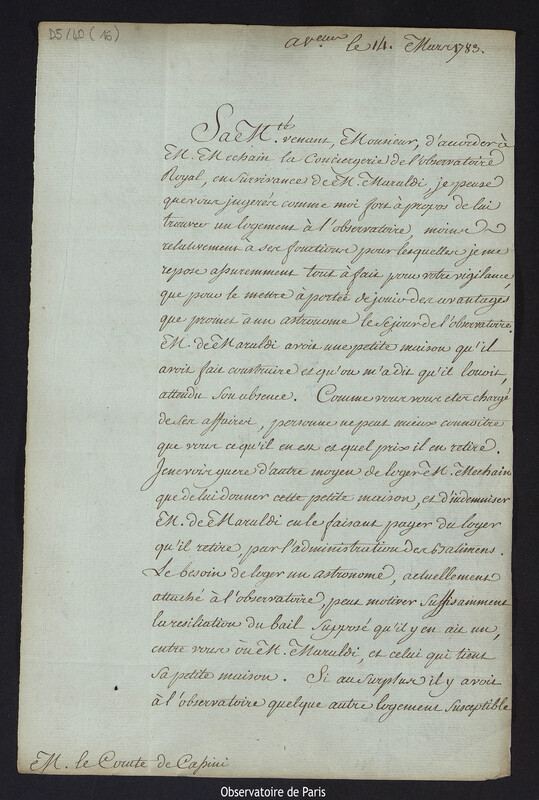 D5/40 (16)
a Vers.lles le 14. Mars 1783.
Sa M.té venant, Monsieur, d'accorder à
M. Mechain la Conciergerie de l'observatoire
Royal, en Survivance de M. Maraldi, je pense
que vous jugerés comme moi fort à propos de lui
trouver un logement à l'observatoire, moins
relativement à ses fonctions pour lesquelles je me
repose assurement tout à fait sur votre vigilance,
que pour le mettre à portée de jouir des avantages
que promet à un astronome le séjour de l'observatoire.
M. de Maraldi avoit une petite maison qu'il
avoit fait construire et qu'on m'a dit qu'il louoit,
attendu Son absence. Comme vous vous etes chargé
de ses affaires, personne ne peut mieux connoitre
que vous ce qu'il en est et quel prix il en retire.
Je ne vois guere d'autre moyen de loger M. Mechain
que de lui donner cette petite maison, et d'indemniser
M. de Maraldi en le faisant payer du loyer
qu'il retire, par l'administration des Batimens.
Le besoin de loger un astronome, actuellement
attaché à l'observatoire, peut motiver Suffisamment
la resiliation du bail Supposé qu'il y en ait un,
entre vous ou M. Maraldi, et celui qui tient
Sa petite maison. Si au Surplus il y avoit
à l'observatoire quelque autre logement Susceptible
M. le Comte de Cassini
Observatoire de Paris